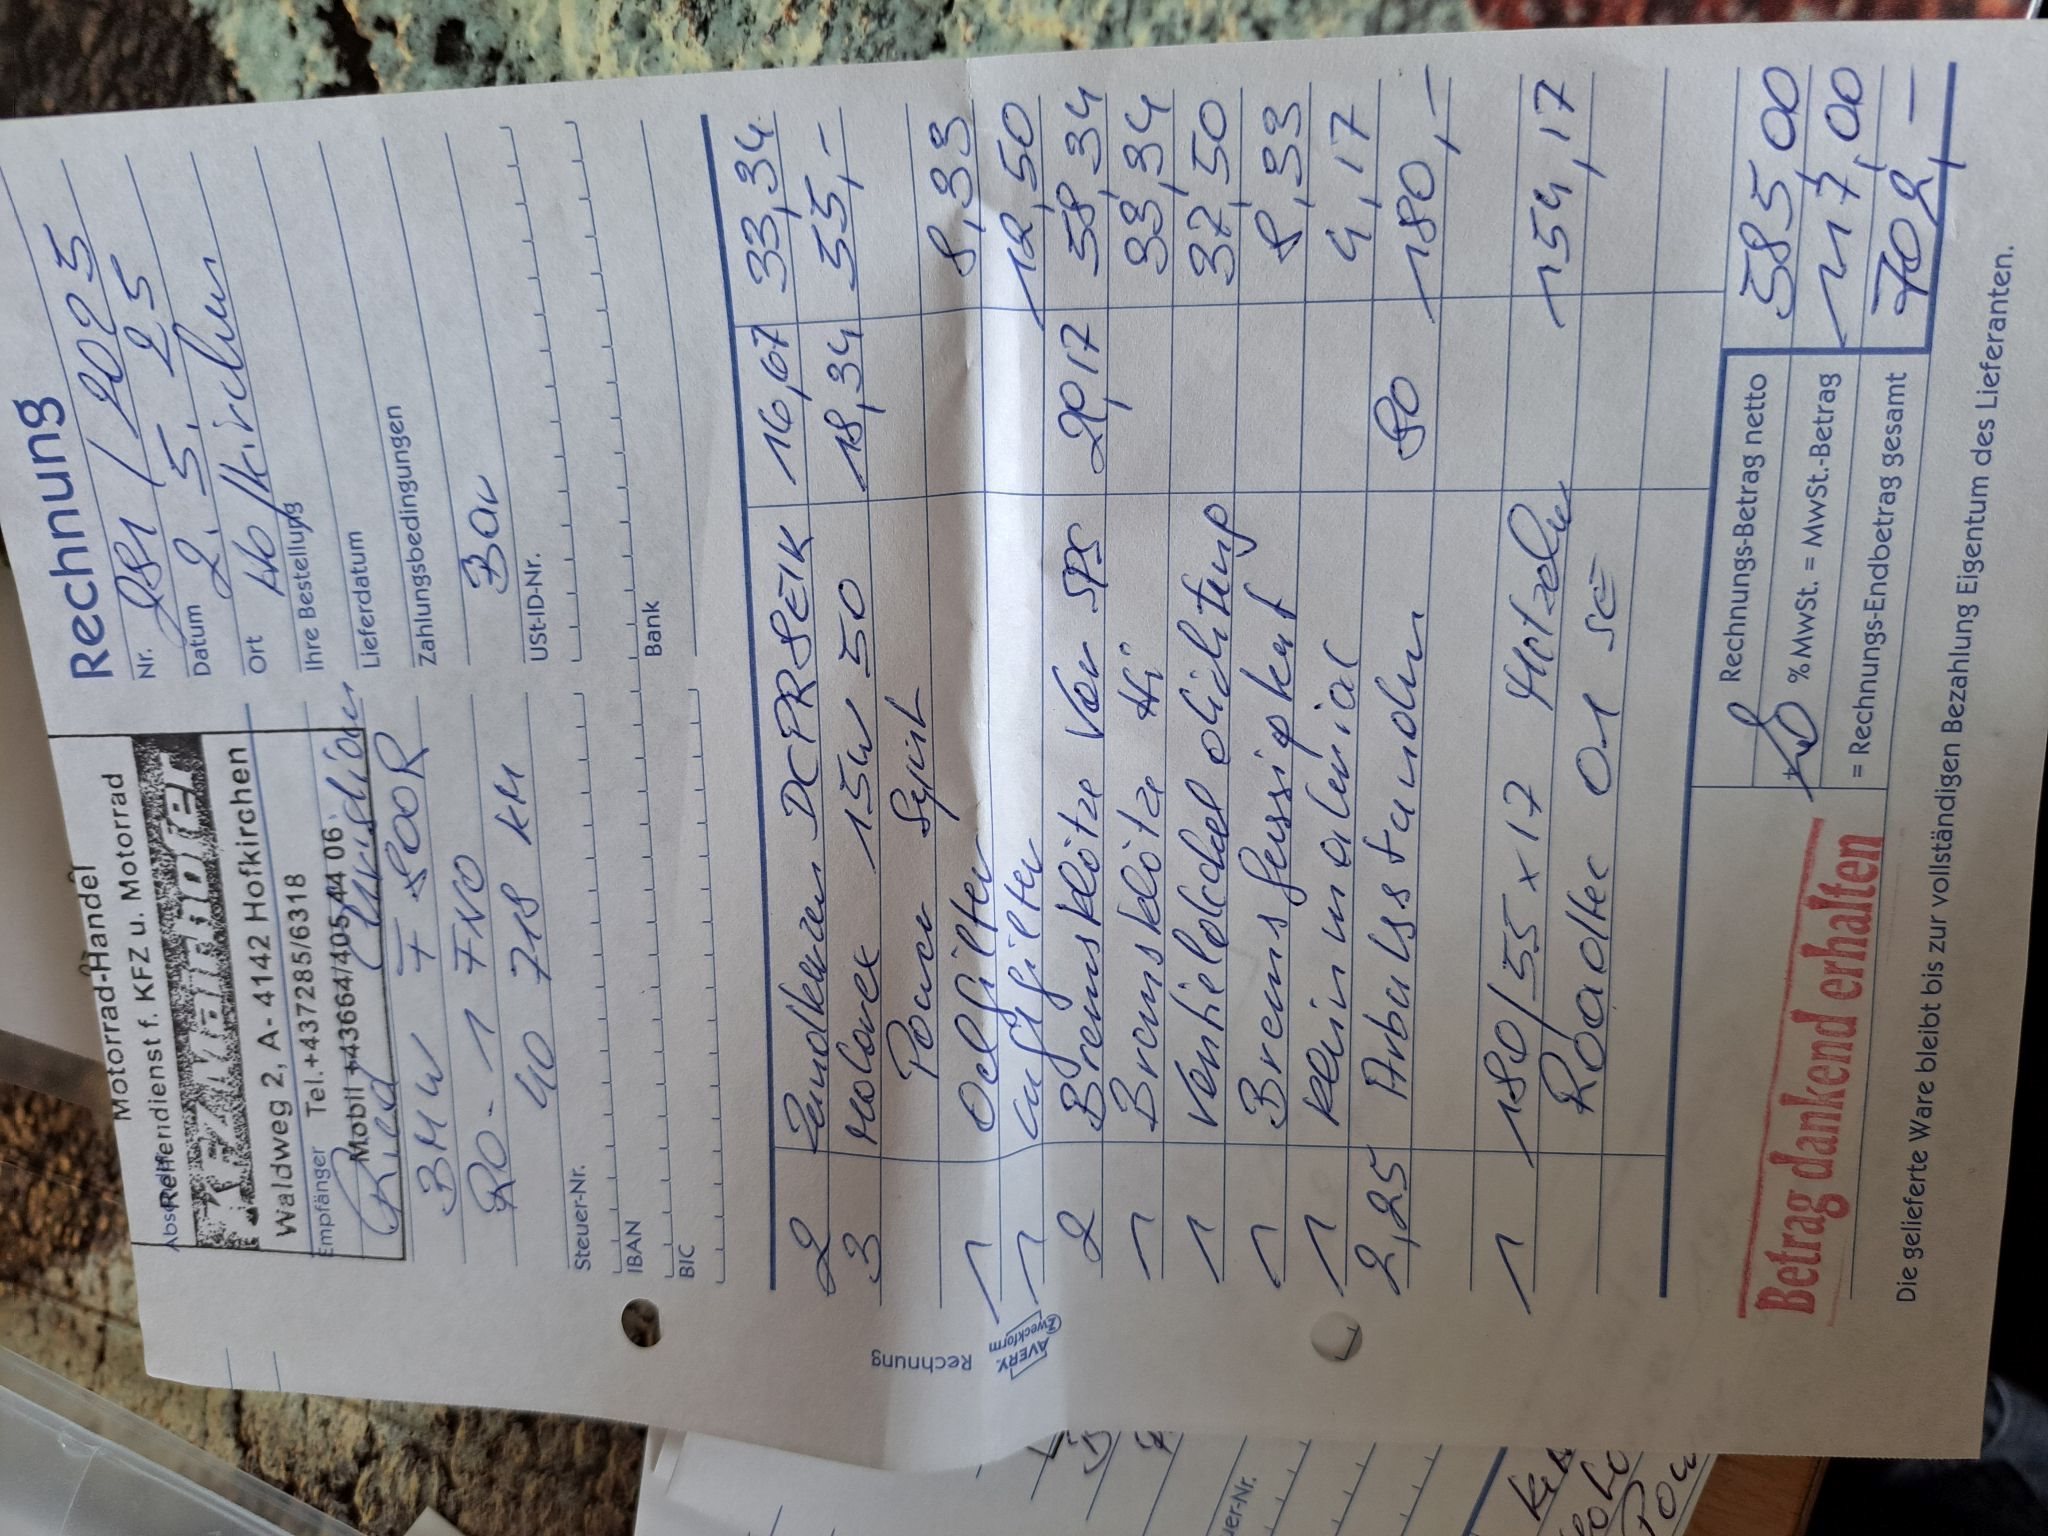 Rechnung
Motorrad-Handel
Reifendienst f. KFZ u. Motorrad
Waldweg 2, A- 4142 Hofkirchen
Tel.+437285/6318
Mobil +43664/405 44 06
Empfänger
Ried Christian
BMW F 800R
RO-1 FNO
40 718 km
Nr. 281 / 2025
Datum 2. 5. 25
Ort Hofkirchen
Ihre Bestellung
Lieferdatum
Zahlungsbedingungen
Bar
USt-ID-Nr.
Steuer-Nr.
IBAN
BIC
Bank
2 Zündkerzen DCPR8EIK 16,67 33,34
3 Motorex 15W 50 18,34 55,-
Power Synt
1 Oelfilter 8,33
1 Luftfilter 12,50
2 Bremsklötze Vor 29,17 58,34
1 Bremsklötze Hi 33,34
1 Ventieldeckeldichtung 37,50
1 Bremsflüssigkeit 8,33
1 Kleinmaterial 4,17
2,25 Arbeitsstunden 80 180,-
1 180/55x17 Metzeler 154,17
Roadtec 01 SE
Rechnungs-Betrag netto 585,00
+ 20 % MwSt. = MwSt.-Betrag 117,00
= Rechnungs-Endbetrag gesamt 702,-
Betrag dankend erhalten
Die gelieferte Ware bleibt bis zur vollständigen Bezahlung Eigentum des Lieferanten.
Rechnung
AVERY
Zweckform